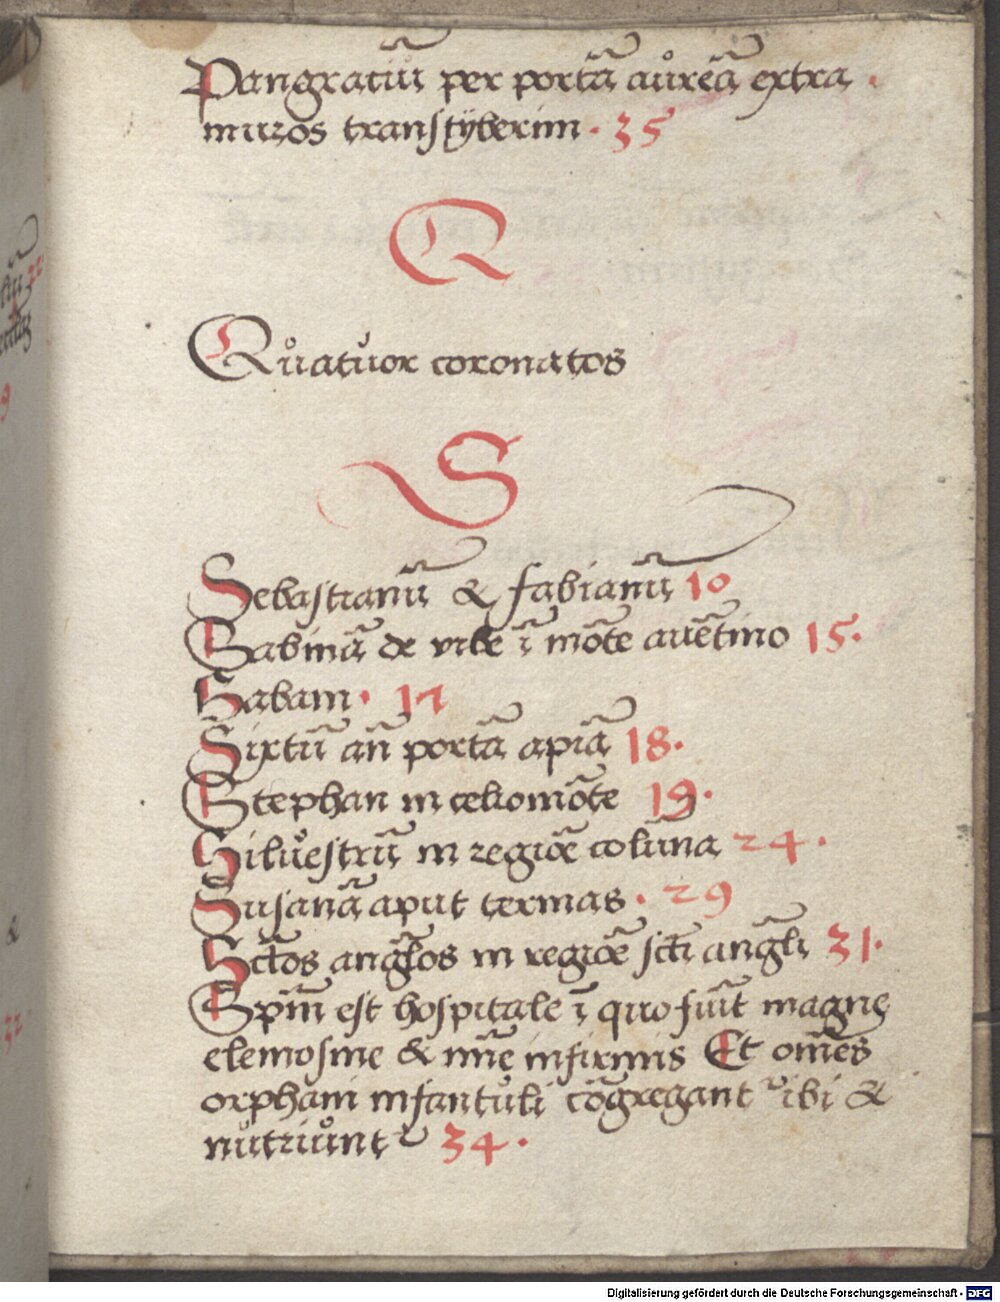 Pangraciū per portā aůreā extra
muros transtÿberim · 35
Q
Qůatůor coronatos
S
Sebastianū & fabianū 10
Sabinā de vrbe ī mōte auētino 15.
Sabam · 17
Sixtū añ portā apiā 18.
Stephan in celiomōte 19.
Silůestrū in regiōe colūna 24.
Susanā aput termas · 29
Sctōs angłos in regiōe scti angłi 31.
Spm̄ est hospitale ī quo fiūt magne
elemosine & infirmis Et om̄es
orphani infantůli cōgregant ibi &
nůtriůnt 34.
Digitalisierung gefördert durch die Deutsche Forschungsgemeinschaft - DFG